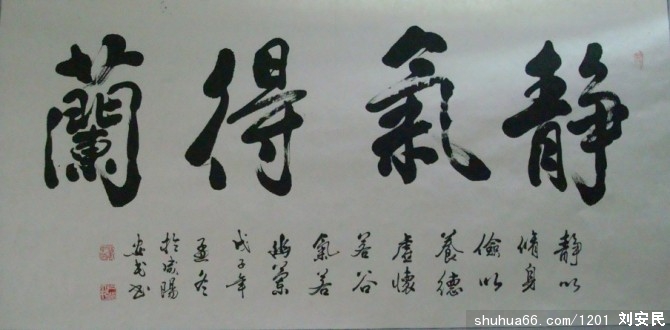 静氣得蘭
静以
修身
儉以
養德
虛懷
若谷
氣若
幽蘭
戊子年
孟冬
於咸陽
安民书
shuhua66.com/1201 刘安民